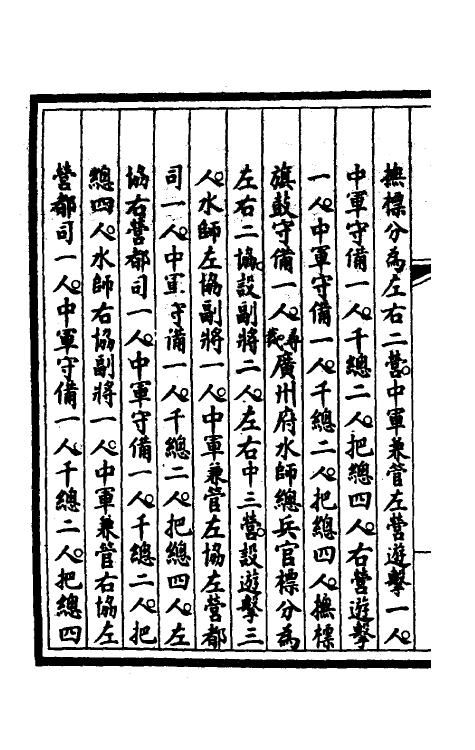 撫標分為左右二營中軍兼管左營遊擊一人
中軍守備一人千總二人把總四人右營遊擊
一人中軍守備一人千總二人把總四人撫標
旗鼓守備一人尋裁廣州府水師總兵官標分為
左右二協設副將二人左右中三營設遊擊三
人水師左協副將一人中軍兼管左協左營都
司一人中軍守備一人千總二人把總四人左
協右營都司一人中軍守備一人千總二人把
總四人水師右協副將一人中軍兼管右協左
營都司一人中軍守備一人千總二人把總四